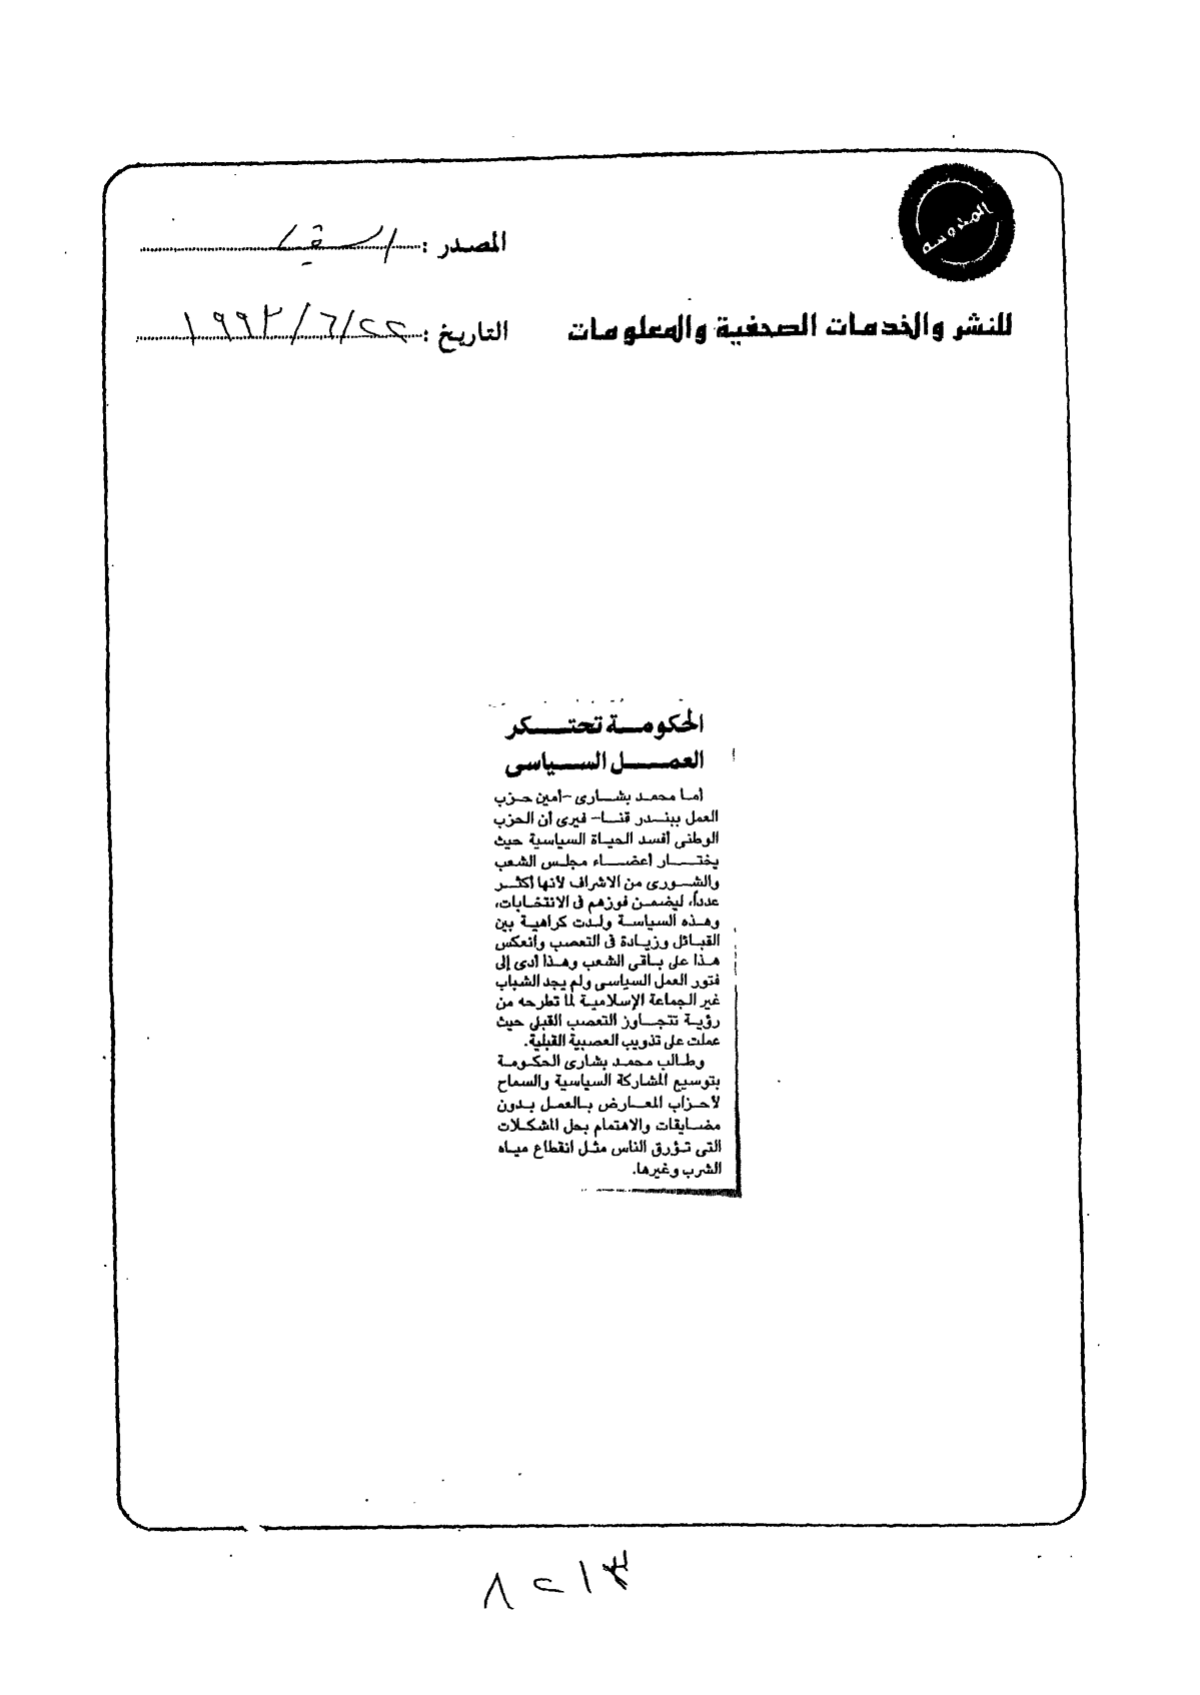 المحروسة
المصدر :
للنشر والخدمات الصحفية والمعلومات
التاريخ : ٢٢/٦/١٩٩٣
الحكومة تحتكر
العمل السياسى
أما محمد بشارى -أمين حزب
العمل ببندر قنا- فيرى أن الحزب
الوطنى أفسد الحياة السياسية حيث
يختار أعضاء مجلس الشعب
والشورى من الاشراف لأنها أكثر
عدداً، ليضمن فوزهم فى الانتخابات،
وهذه السياسة ولدت كراهية بين
القبائل وزيادة فى التعصب وانعكس
هذا على باقى الشعب وهذا أدى إلى
فتور العمل السياسى ولم يجد الشباب
غير الجماعة الإسلامية لما تطرحه من
رؤية تتجاوز التعصب القبلى حيث
عملت على تذويب العصبية القبلية.
وطالب محمد بشارى الحكومة
بتوسيع المشاركة السياسية والسماح
لأحزاب المعارض بالعمل بدون
مضايقات والاهتمام بحل المشكلات
التى تؤرق الناس مثل انقطاع مياه
الشرب وغيرها.